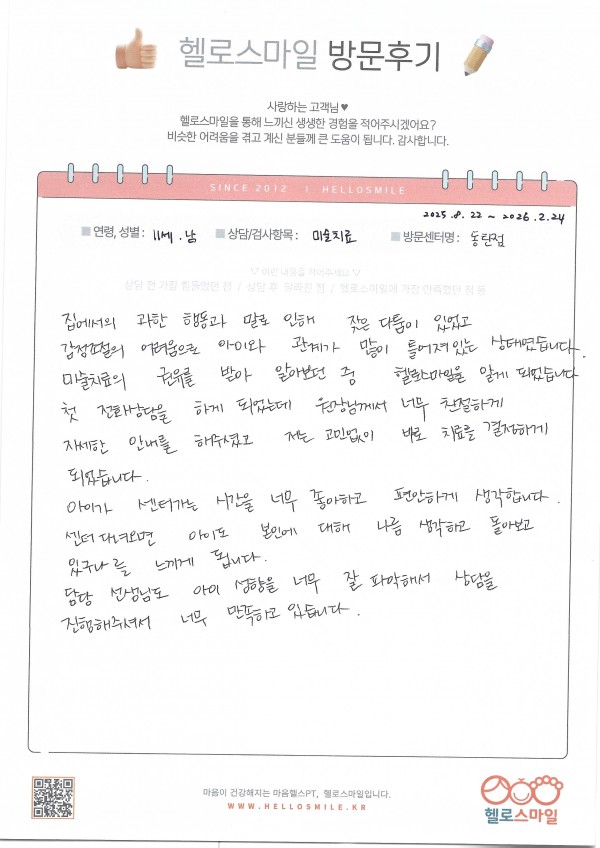 헬로스마일 방문후기
사랑하는 고객님♥
헬로스마일을 통해 느끼신 생생한 경험을 적어주시겠어요?
비슷한 어려움을 겪고 계신 분들께 큰 도움이 됩니다. 감사합니다.
SINCE 2012 I HELLOSMILE
2025.8.22 ~ 2026.2.24
연령, 성별 : 11세.남 상담/검사항목 : 미술치료 방문센터명 : 동탄점
▽ 이런 내용을 적어주세요 ▽
상담 전 가장 힘들었던 점 / 상담 후 달라진 점 / 헬로스마일에 가장 만족했던 점 등
집에서의 과한 행동과 말로 인해 잦은 다툼이 있었고
감정조절의 어려움으로 아이와 관계가 많이 틀어져있는 상태였습니다.
미술치료의 권유를 받아 알아보던 중 헬로스마일을 알게 되었습니다
첫 전화상담을 하게 되었는데 원장님께서 너무 친절하게
자세한 안내를 해주셨고 저는 고민없이 바로 치료를 결정하게
되었습니다.
아이가 센터가는 시간을 너무 좋아하고 편안하게 생각합니다.
센터 다녀오면 아이도 본인에 대해 나름 생각하고 돌아보고
있구나를 느끼게 됩니다.
담당 선생님도 아이 성향을 너무 잘 파악해서 상담을
진행해주셔서 너무 만족하고 있습니다.
마음이 건강해지는 마음헬스PT, 헬로스마일입니다.
WWW.HELLOSMILE.KR
헬로스마일